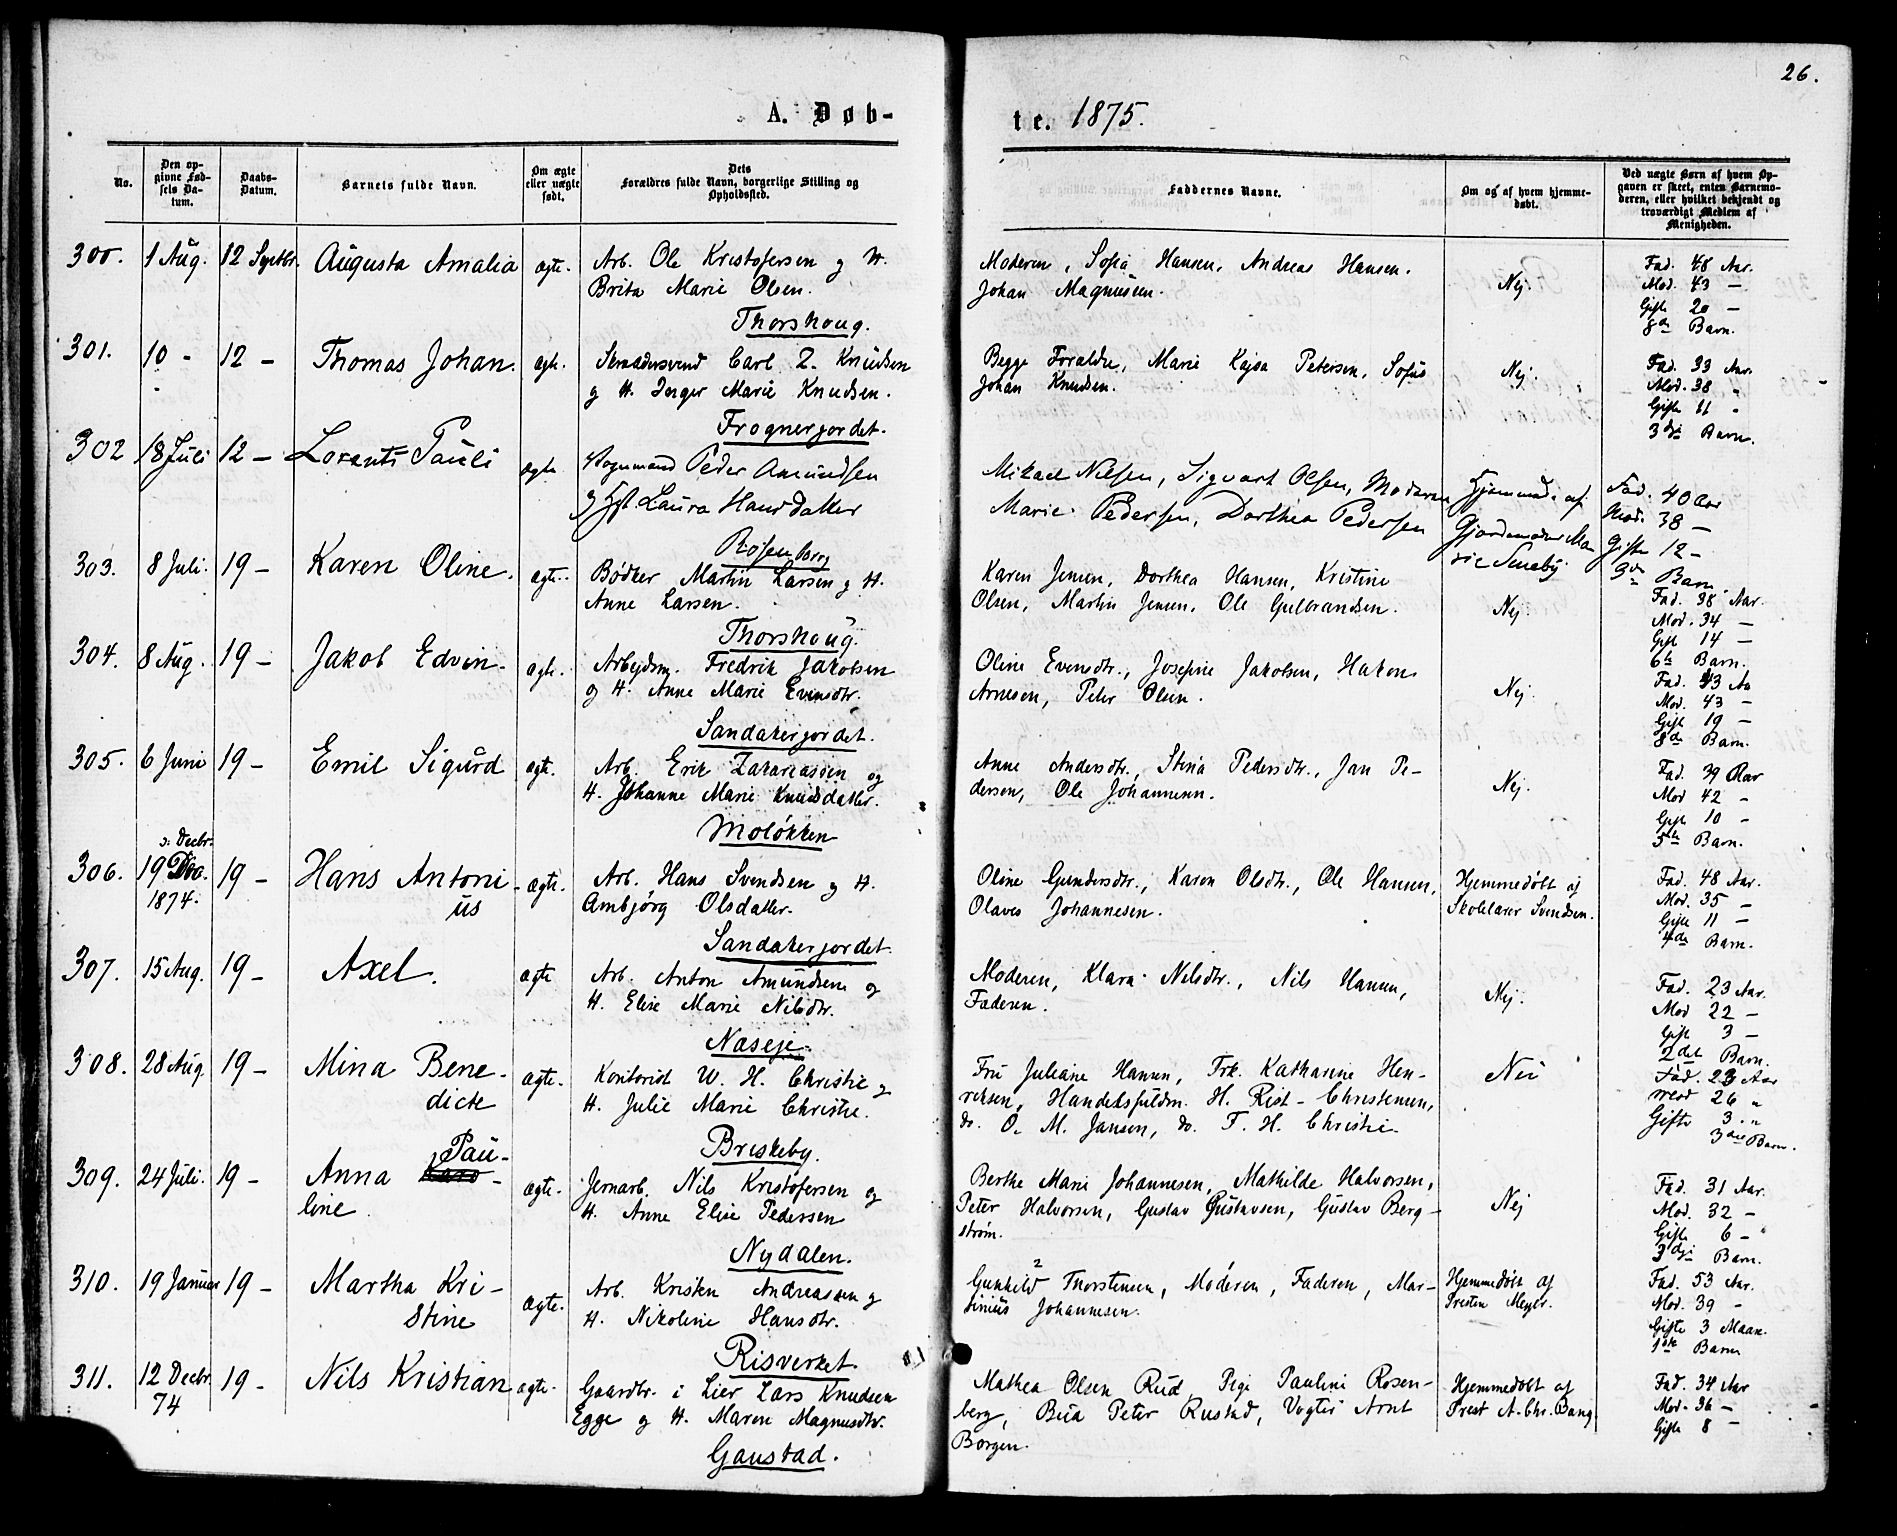 26.
A. Døb-
te. 1875.
No.
Den op-
givne Fød-
sels Da-
tum.
Daabs-
Datum.
Barnets fulde Navn.
Om ægte
eller uægte
født.
Dets
Forældres fulde Navn, borgerlige Stilling og
Opholdssted.
Faddernes Navne.
Om og af hvem hjemme-
døbt.
Ved uægte Børn af hvem Op-
gaven er skeet, enten Barnemo-
deren, eller hvilket bekjendt og
troværdigt Medlem af
Menigheden.
300. 1 Aug. 12 Septbr. Augusta Amalia ægte. Arb. Ole Kristofersen og H.
Brita Marie Olsen.
Thorshoug.
Moderen, Sofia Hansen, Andreas Hansen.
Johan Magnusen.
Nej.
Fad. 48 Aar.
Mod. 43 —
Gifte 20 —
8de Barn.
301. 10 - 12 — Thomas Johan. ægte. Skræddersvend Carl Z. Knudsen
og H. Inger Marie Knudsen.
Frognerjordet.
Begge Forældre, Marie Kajsa Petersen, Sofus
Johan Knudsen.
Nej.
Fad. 33 Aar.
Mod. 38 "
Gifte 11 "
3die Barn.
302 18 Juli 12 — Lorents Pauli ægte Vognmand Peder Amundsen
og H. Laura Hansdatter
Rosenborg
Mikael Nilsen, Sigvart Olsen, Moderen
Marie Pedersen, Dorthea Pedersen
Hjemmed. af
Gjordemoder Ma
rie Smeby.
Fad. 40 Aar
Mod. 38 —
Gifte 12 —
9de Barn
303. 8 Juli. 19 — Karen Oline. ægte. Bødker Martin Larsen og H.
Anne Larsen.
Thorshoug.
Karen Jensen, Dorthea Hansen, Kristine
Olsen, Martin Jensen, Ole Gulbrandsen.
Nej.
Fad. 38 Aar.
Mod. 34 —
Gift 14 —
6te Barn.
304. 8 Aug. 19 — Jakob Edvin. ægte. Arbejdsm. Fredrik Jakobsen
og H. Anne Marie Evensdtr.
Sandakerjordet.
Oline Evensdtr., Josefine Jakobsen, Hakon
Arnesen, Peter Olsen.
Nej.
Fad. 43 Aa
Mod. 43 —
Gift 19 —
8de Barn.
305. 6 Juni 19 — Emil Sigurd ægte. Arb. Erik Zakariassen og
H. Johanne Marie Knudsdatter.
Moløkken
Anne Andersdtr., Stina Pedersdtr., Jan Pe-
dersen, Ole Johannesen.
Nej.
Fad. 39 Aar
Mod 42 -
Gift 10 -
5te Barn.
306. 19 Dec.
1874.
ↄ: Decbr.
19 — Hans Antoni
us
ægte. Arb. Hans Svendsen og H.
Ambjørg Olsdatter.
Sandakerjordet
Oline Gundersdtr., Karen Olsdtr., Ole Hansen,
Olaves Johannesen.
Hjemmedøbt af
Skolelærer Svendsen.
Fad. 48 Aar.
Mod. 35 —
Gifte 11 —
4de Barn.
307. 15 Aug. 19 — Axel. ægte Arb. Anton Amundsen og
H. Elise Marie Nilsdtr.
Næseje.
Moderen, Klara Nilsdtr., Nils Hansen,
Faderen.
Nej.
Fad. 23 Aar.
Mod 22 —
Gift 3 —
2det Barn.
308. 28 Aug. 19 — Mina Bene-
dicte
ægte. Kontorist W. H. Christie og
H. Julie Marie Christie.
Briskeby.
Fru Juliane Hansen, Frk. Katharine Hen-
riksen, Handelsfuldm. H. Rist-Christensen,
do. O. M. Jansen, do. F. H. Christie.
Nei
Fad. 28 Aar
Mod 26 "
Gifte 3 "
3die Barn.
309. 24 Juli. 19 — Anna Pau-
line.
ægte. Jernarb. Nils Kristofersen og
H. Anne Elise Pedersen
Nydalen.
Berthe Marie Johannesen, Mathilde Halvorsen,
Peter Halvorsen, Gustav Gustavsen, Gustav Berg-
strøm.
Nej
Fad. 31 Aar.
Mod. 32 —
Gifte 6 —
3die Barn.
310. 19 Januar 19 — Martha Kri-
stine
ægte. Arb. Kristen Andreassen og
H. Nikoline Hansdtr.
Risverket.
Gunhild Thorstensen, Moderen, Faderen, Mar-
tinius Johannesen.
Hjemmedøbt af
Presten Meyer.
Fad. 53 Aar.
Mod. 39 -
Gifte 3 Maan.
1ste Barn
311. 12 Decbr
74
19 - Nils Kristian ægte. Gaardbr. i Lier Lars Knudsen
Egge og H. Maren Magnusdtr.
Gaustad.
Mathea Olsen Rud, Pige Pauline Rosen-
berg, Peter Rustad, Vogter Arnt
Borgen.
Hjemmedøbt af
Prest A. Chr. Bang.
Fad. 34 Aar
Mod. 36 —
Gifte 8 —